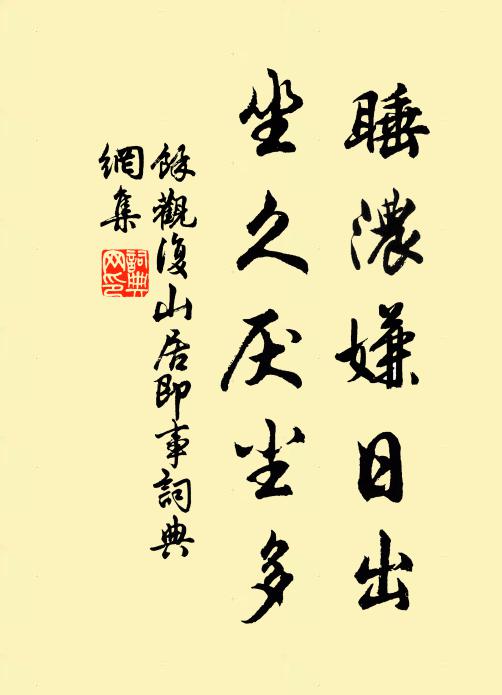 睡濃嫌日出
坐久厌尘多
餘觀復山居即事詞典
網集
詞典网印